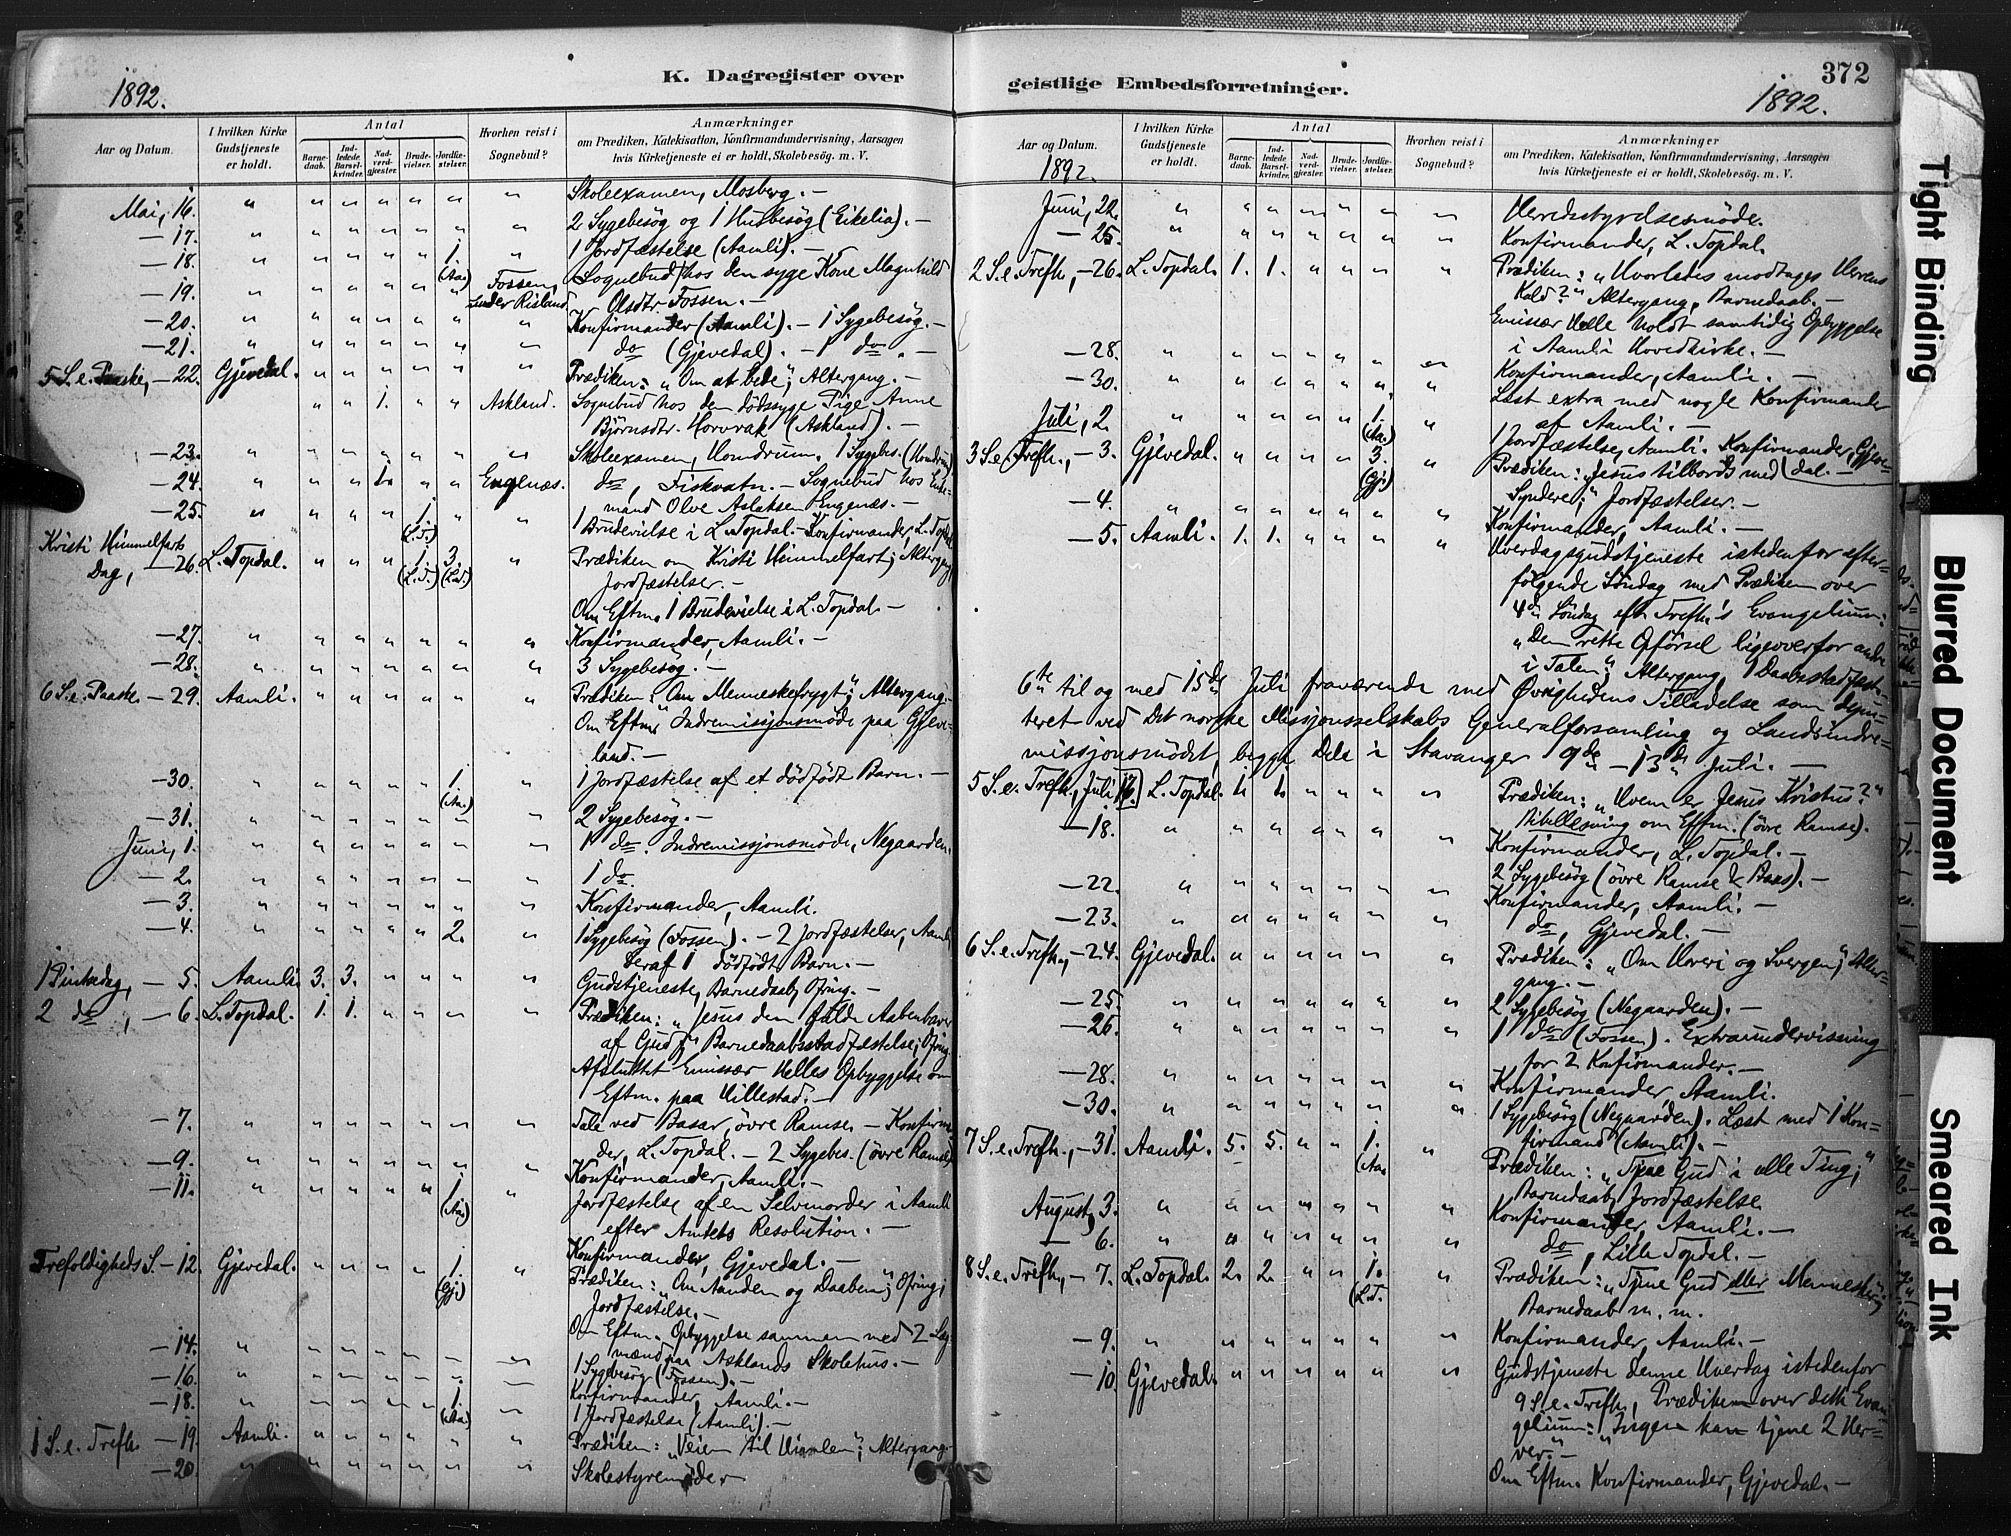 1892.
K. Dagregister over
Aar og Datum.
I hvilken Kirke
Gudstjeneste
er holdt.
Antal
Barne-
daab.
Ind-
ledede
Barsel-
kvinder.
Nad-
verd-
gjæster.
Brude-
vielser.
Jordfæ-
stelser.
Hvorhen reist i
Sognebud?
Anmærkninger
om Prædiken, Katekisation, Konfirmandundervisning, Aarsagen
hvis Kirketjeneste ei er holdt, Skolebesög. m. V.
Mai, 16. " " " " " " " Skoleexamen, Mosberg. —
— 17. " " " " " " " 2 Sygebesøg og 1 Husbesøg (Eikelia). —
— 18. " " " " " 1. (Aa.) " 1 Jordfæstelse (Aamli). —
— 19. " " " " " " Fossen, under Risland Sognebud hos den syge Kone Magnhild
Olsdtr. Fossen. —
— 20. " " " " " " " Konfirmander (Aamli). — 1 Sygebesøg. —
— 21. " " " " " " " do (Gjevedal). — 1 do. —
5 S. e. Paaske, — 22. Gjevedal. " " " " " " Prædiken: "Om at bede"; Altergang. —
" " 1. " " Askland. Sognebud hos den dødssyge Pige Anne
Björnsdtr. Horvrak (Askland). —
— 23. " " " " " " " Skoleexamen, Homdrum. 1 Sygebs. (Homdrum)
— 24. " " " 1. " " Engenæs. do, Fiskvatn. — Sognebud hos Enke-
mand Olve Aslaksen Engenæs. —
— 25. " " " " 1. (L.T.) " " 1 Brudevielse i L. Topdal. — Konfirmander, L. Topdal
Kristi Himmelfarts
Dag, — 26. L. Topdal. " " " 1. (L.T.) 3. (L.T.) " Prædiken om Kristi Himmelfart; Altergang,
Jordfæstelser. —
Om Eftm. 1 Brudevielse i L. Topdal. —
— 27. " " " " " " " Konfirmander, Aamli. —
— 28. " " " " " " " 3 Sygebesøg. —
6 S. e. Paaske — 29. Aamli. " " " " " " Prædiken: "Om Menneskefrygt"; Altergang.
Om Eftm. Indremissjonsmøde paa Gjeve-
land. —
— 30. " " " " " 1. (Aa.) " 1 Jordfæstelse af et dødfødt Barn. —
— 31. " " " " " " " 2 Sygebesøg. —
Juni, 1. " " " " " " " 1 do. Indremissjonsmøde, Negaarden.
— 2. " " " " " " " 1 do
— 3. " " " " " " " Konfirmander, Aamli.
— 4. " " " " " 2. " 1 Sygebesøg (Fossen). — 2 Jordfæstelser, Aamli
deraf 1 dødfødt Barn. —
1 Pinsedag, — 5. Aamli 3. 3. " " " " Gudstjeneste, Barnedaab, Ofring. —
2 do, — 6. L. Topdal. 1. 1. " " " " Prædiken: "Jesus den fulde Aabenbarer
af Gud"; Barnedaabsstadfæstelse; Ofring.
Afsluttet Emissær Helles Opbyggelse om
Eftm. paa Hillestad. —
— 7. " " " " " " " Tale ved Basar, øvre Ramse. — Konfirman-
der, L. Topdal. — 2 Sygebes. (øvre Ramse)
— 9. " " " " " " " Konfirmander, Aamli. —
— 11. " " " " " 1. (Aa.) " Jordfæstelse af en Selvmorder i Aamli
efter Amtets Resolution. —
Konfirmander, Gjevedal. —
Trefoldigheds S. — 12. Gjevedal. " " " " 1. (Gj.) " Prædiken: "Om Aanden og Daaben"; Ofring;
Jordfæstelse. —
Om Eftm. Opbyggelse sammen med 2 Læg-
mænd paa Asklands Skolehus. —
— 14. " " " " " " " 1 Sygebesøg (Fossen). —
— 16. " " " " " " " Konfirmander, Aamli. —
— 18. " " " " " 1. (Aa.) " 1 Jordfæstelse (Aamli). —
1 S. e. Trefh. — 19. Aamli. " " " " " " Prædiken: "Veien til Himlen"; Altergang.
— 20. " " " " " " " Skolestyremøde
geistlige Embedsforretninger.
372
1892.
Aar og Datum.
1892.
I hvilken Kirke
Gudstjeneste
er holdt.
Antal
Barne-
daab.
Ind-
ledede
Barsel-
kvinder.
Nad-
verd-
gjæster.
Brude-
vielser.
Jordfæ-
stelser.
Hvorhen reist i
Sognebud?
Anmærkninger
om Prædiken, Katekisation, Konfirmandundervisning, Aarsagen
hvis Kirketjeneste ei er holdt, Skolebesög. m. V.
Juni, 22. " " " " " " " Herredsstyrelsesmøde.
— 25. " " " " " " " Konfirmander, L. Topdal.
2 S. e. Trefh., — 26. L. Topdal. 1. 1. " " " " Prædiken: "Hvorledes modtages Herrens
Kald?" Altergang, Barnedaab. —
Emissær Helle holdt samtidig Opbyggelse
i Aamli Hovedkirke. —
— 28. " " " " " " " Konfirmander, Aamli. —
— 30. " " " " " " " Læst extra med nogle Konfirmander
af Aamli. —
Juli, 2. " " " " " 1. (Aa.) " 1 Jordfæstelse, Aamli. Konfirmander, Gjeve-
dal. —
3 S. e. Trefh., — 3. Gjevedal. " " " " 3. (Gj.) " Prædiken: "Jesus tilbords med
Syndere"; Jordfæstelser. —
— 4. " " " " " " " Konfirmander, Aamli. —
— 5. Aamli. 1. 1. " " " " Hverdagsgudstjeneste istedenfor efter-
følgende Søndag med Prædiken over
4de Søndag eft. Trefh.'s Evangelium:
"Den rette Opførsel ligeoverfor andre
i Talen"; Altergang, 1 Daabsstadfæst.
6te til og med 15de Juli fraværende med Øvrighedens Tilladelse som depu-
teret ved Det norske Missjonsselskabs Generalforsamling og Landsindre-
missjonsmødet, begge Dele i Stavanger 9de — 13de Juli. —
5 S. e. Trefh., Juli 17. L. Topdal. 1. 1. " " " " Prædiken: "Hvem er Jesus Kristus?"
Bibellesning om Eftm. (øvre Ramse).
— 18. " " " " " " " Konfirmander, L. Topdal. —
2 Sygebesøg (øvre Ramse & Baas). —
— 22. " " " " " " " Konfirmander, Aamli. —
— 23. " " " " " " " do, Gjevedal. —
6 S. e. Trefh., — 24. Gjevedal. " " " " " " Prædiken: "Om Hveri og Sværgen"; Alter-
gang. —
— 25. " " " " " " " 2 Sygebesøg (Negaarden). —
— 26. " " " " " " " 1 do (Fossen). Extraundervisning
for 2 Konfirmander. —
— 28. " " " " " " " Konfirmander Aamli.
— 30. " " " " " " " 1 Sygebesøg (Negaarden). Læst med 1 Kon-
firmand (Aamli). —
7 S. e. Trefh., — 31. Aamli. 5. 5. " " 1. (Aa. " Prædiken: "Tjene Gud i alle Ting;"
Barnedaab, Jordfæstelse
August, 3. " " " " " " " Konfirmander, Aamli. —
— 6. " " " " " " " do, Lille Topdal. —
8 S. e. Trefh., — 7. L. Topdal. 2. 2. " " 1. (L.T. " Prædiken: "Tjene Gud eller Mennesker";
Barnedaab m. m.
— 9. " " " " " " " Konfirmander, Aamli. —
— 10. Gjevedal. " " " " " " Gudstjeneste denne Hverdag istedenfor
9 S. e. Trefh., Prædiken over dette Evan-
gelium: "Ingen kan tjene 2 Her-
rer." —
Om Eftm. Konfirmander, Gjevedal. —
Tight Binding
Blurred Document
Smeared Ink